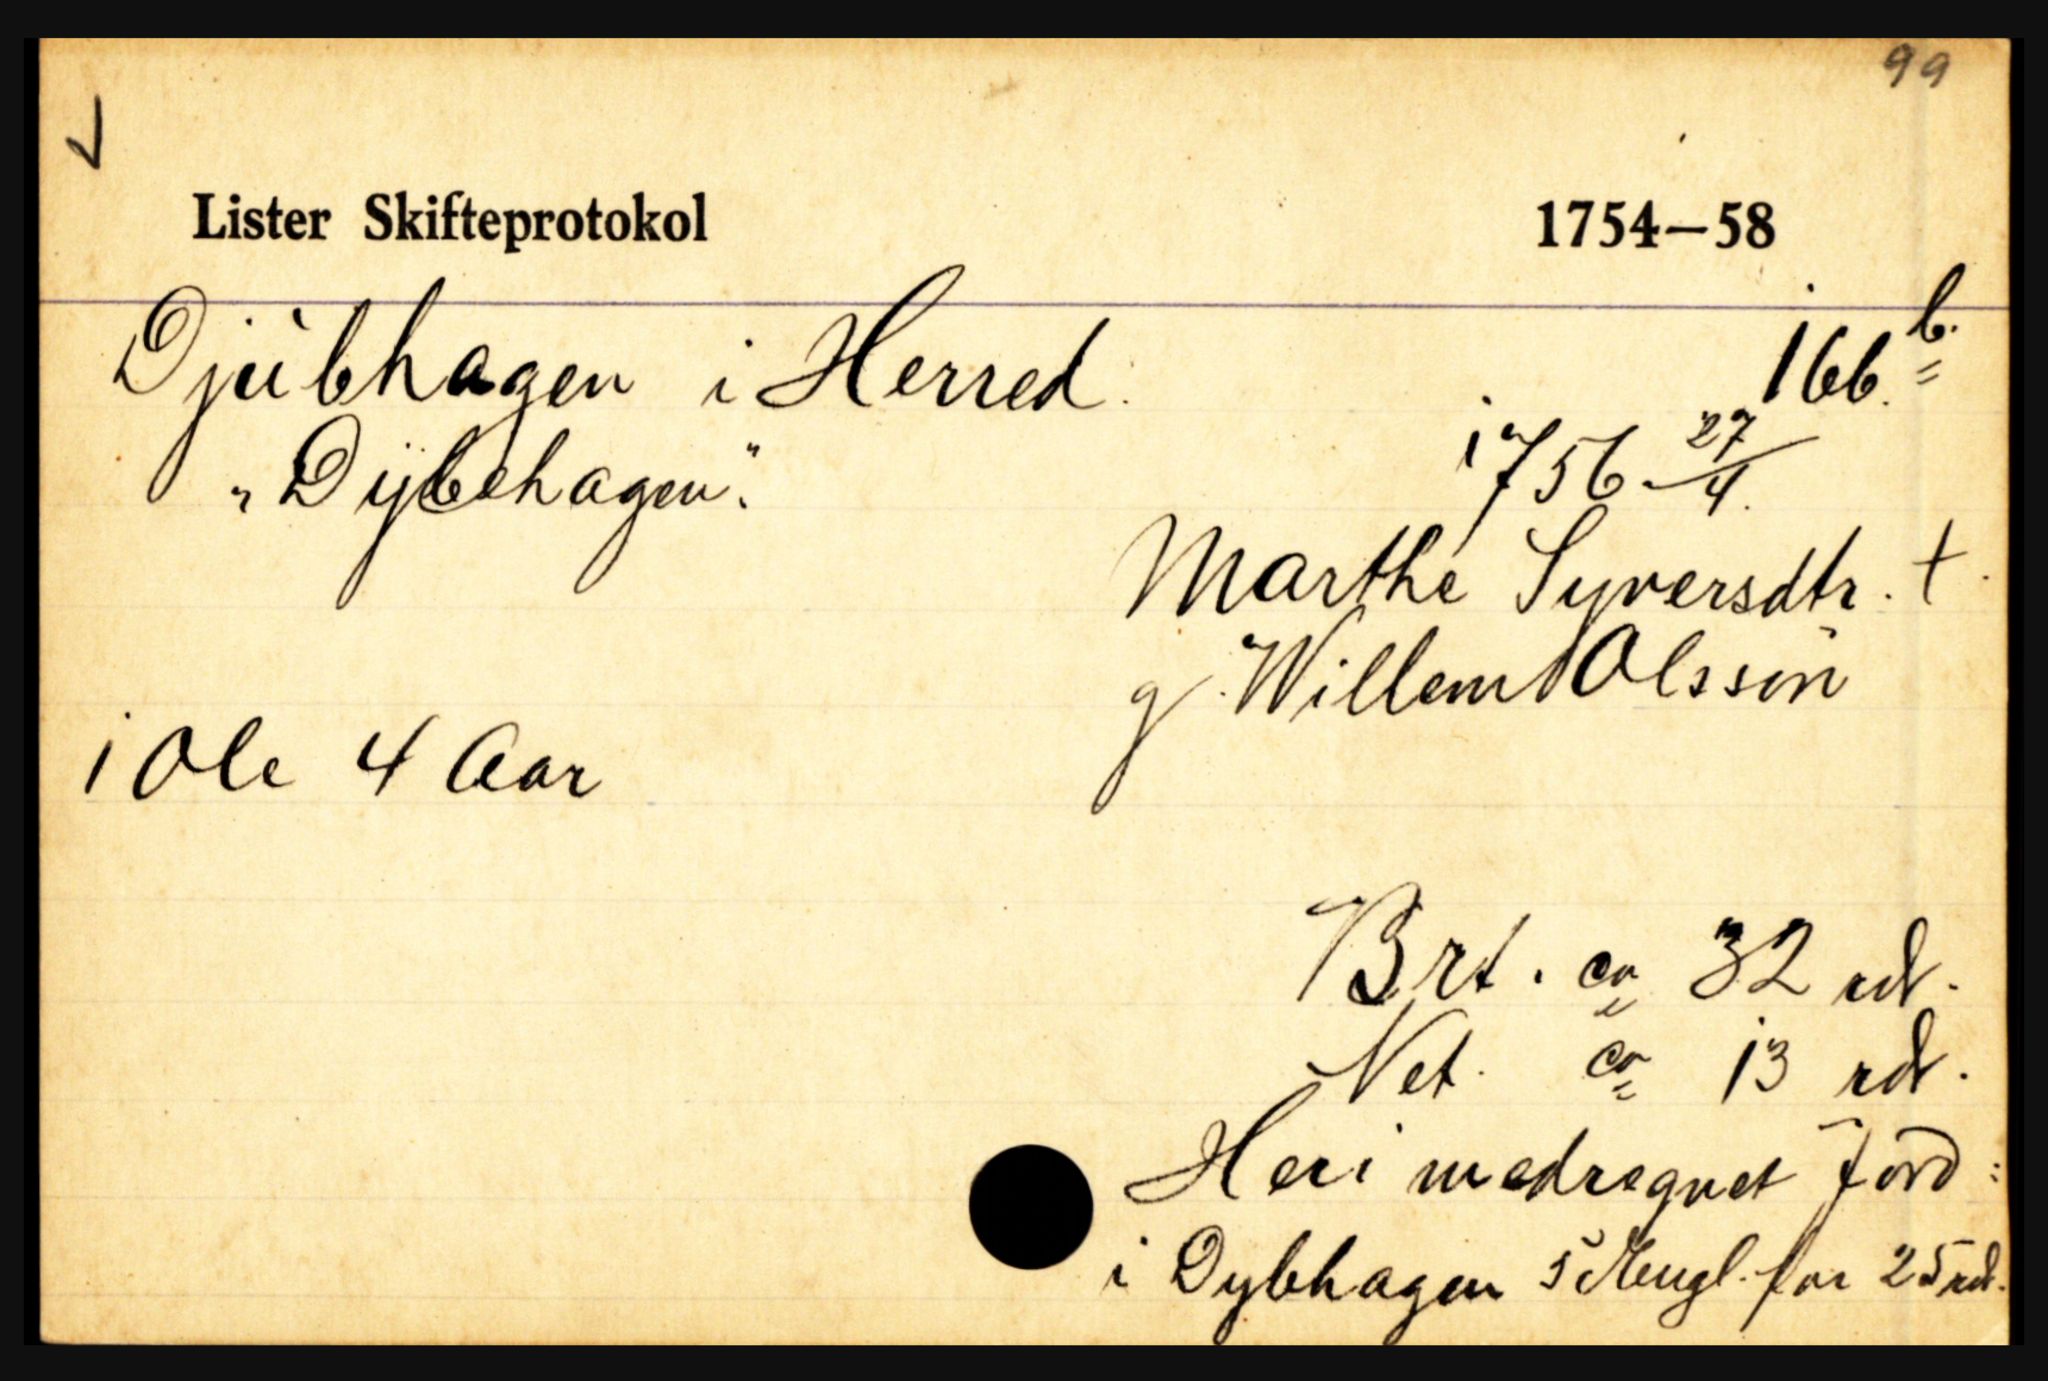 99
Lister Skifteprotokol 1754—58
Djúbhagen i Herred. 166.b.
"Dÿbehagen". 1756 27/4.
Marthe Syversdtr. †
g. Willem Olssön
1 Ole 4 Aar
Brt. ca 32 rdl.
Net. ca 13 rdl.
Heri medregnet Jord:
i Dybhagen 5 Eugl. for 25 rdl.